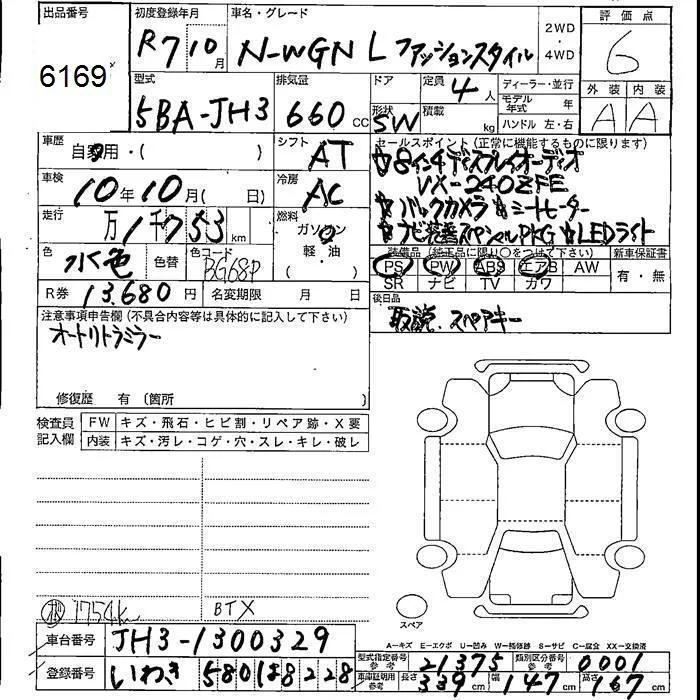 出品番号
6169
初度登録年月
R7 10月
車名・グレード
N-WGN L ファッションスタイル
2WD・4WD
評価点
6
型式
5BA-JH3
排気量
660 cc
ドア
定員
4人
形状
SW
積載
kg
ディーラー・並行
モデル年式 年
ハンドル 左・右
外装 内装
A A
車歴
自家用・( )
シフト
AT
セールスポイント(正常に機能するものに限ります)
☆8インチディスプレイオーディオ
VX-240ZFE
☆バックカメラ ☆シートヒーター
☆ナビ装着スペシャルPKG ☆LEDライト
車検
10年10月( 日)
冷房
AC
走行
万1千753km
燃料
ガソリン
軽・油
( )
色
水色
色替
色コード
BG68P
装備品(純正品に限り○をつけて下さい)
PS PW ABS エアB AW
SR ナビ TV カワ
新車保証書
有・無
R券 13,680円
名変期限 月 日
後日品
取説、スペアキー
注意事項申告欄(不具合内容等は具体的に記入して下さい)
オートリトラミラー
修復歴 有(箇所 )
検査員記入欄
FW キズ・飛石・ヒビ割・リペア跡・X要
内装 キズ・汚レ・コゲ・穴・スレ・キレ・破レ
1754km
BTX
スペア
A-キズ E-エクボ U-凹み W-補修跡 S-サビ C-腐食 XX-交換済
車台番号
JH3-1300329
登録番号
いわき 580 は 8228
型式指定番号 参考
21375
類別区分番号 参考
0001
車庫証明用 参考
長さ 339cm 幅 147cm 高さ 167cm